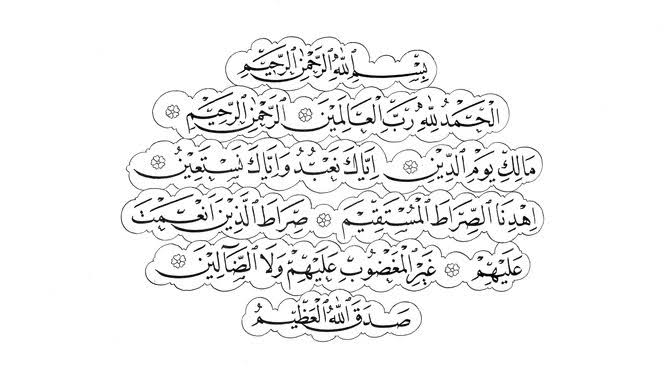 بِسْمِ اللهِ الرَّحْمٰنِ الرَّحِيْمِ
الْحَمْدُ لِلّٰهِ رَبِّ الْعَالَمِيْنَ ۞ الرَّحْمٰنِ الرَّحِيْمِ ۞
مَالِكِ يَوْمِ الدِّيْنِ ۞ اِيَّاكَ نَعْبُدُ وَاِيَّاكَ نَسْتَعِيْنُ ۞
اِهْدِنَا الصِّرَاطَ الْمُسْتَقِيْمَ ۞ صِرَاطَ الَّذِيْنَ اَنْعَمْتَ
عَلَيْهِمْ ۞ غَيْرِ الْمَغْضُوْبِ عَلَيْهِمْ وَلَا الضَّآلِّيْنَ ۞
صَدَقَ اللهُ الْعَظِيْمُ